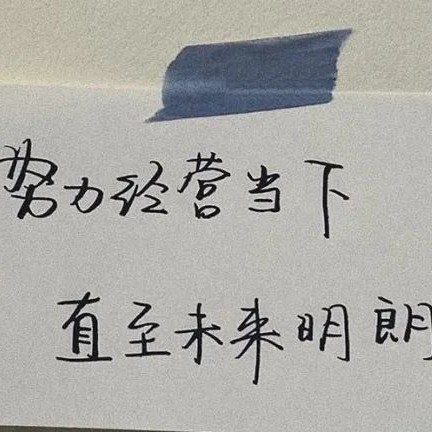 努力经营当下
直至未来明朗